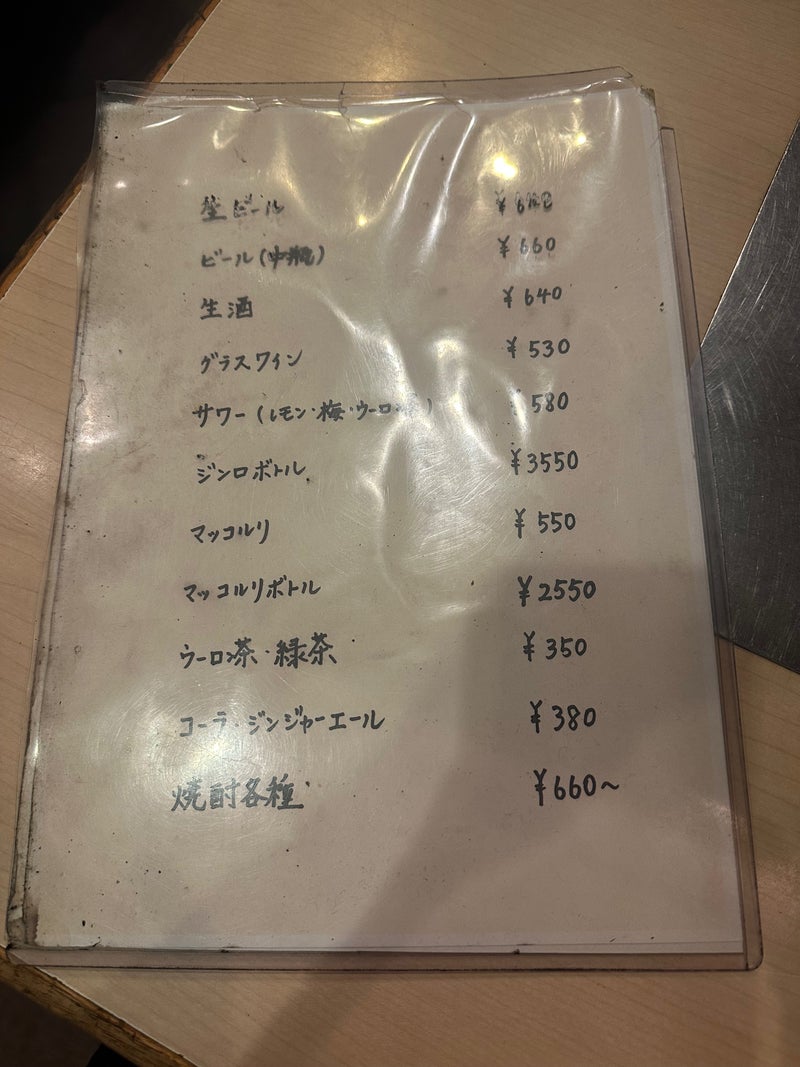 生ビール
ビール(中瓶) ¥660
生酒 ¥640
グラスワイン ¥530
サワー(レモン・梅・ウーロン茶) ¥580
ジンロボトル ¥3550
マッコルリ ¥550
マッコルリボトル ¥2550
ウーロン茶・緑茶 ¥350
コーラ・ジンジャーエール ¥380
焼酎各種 ¥660~